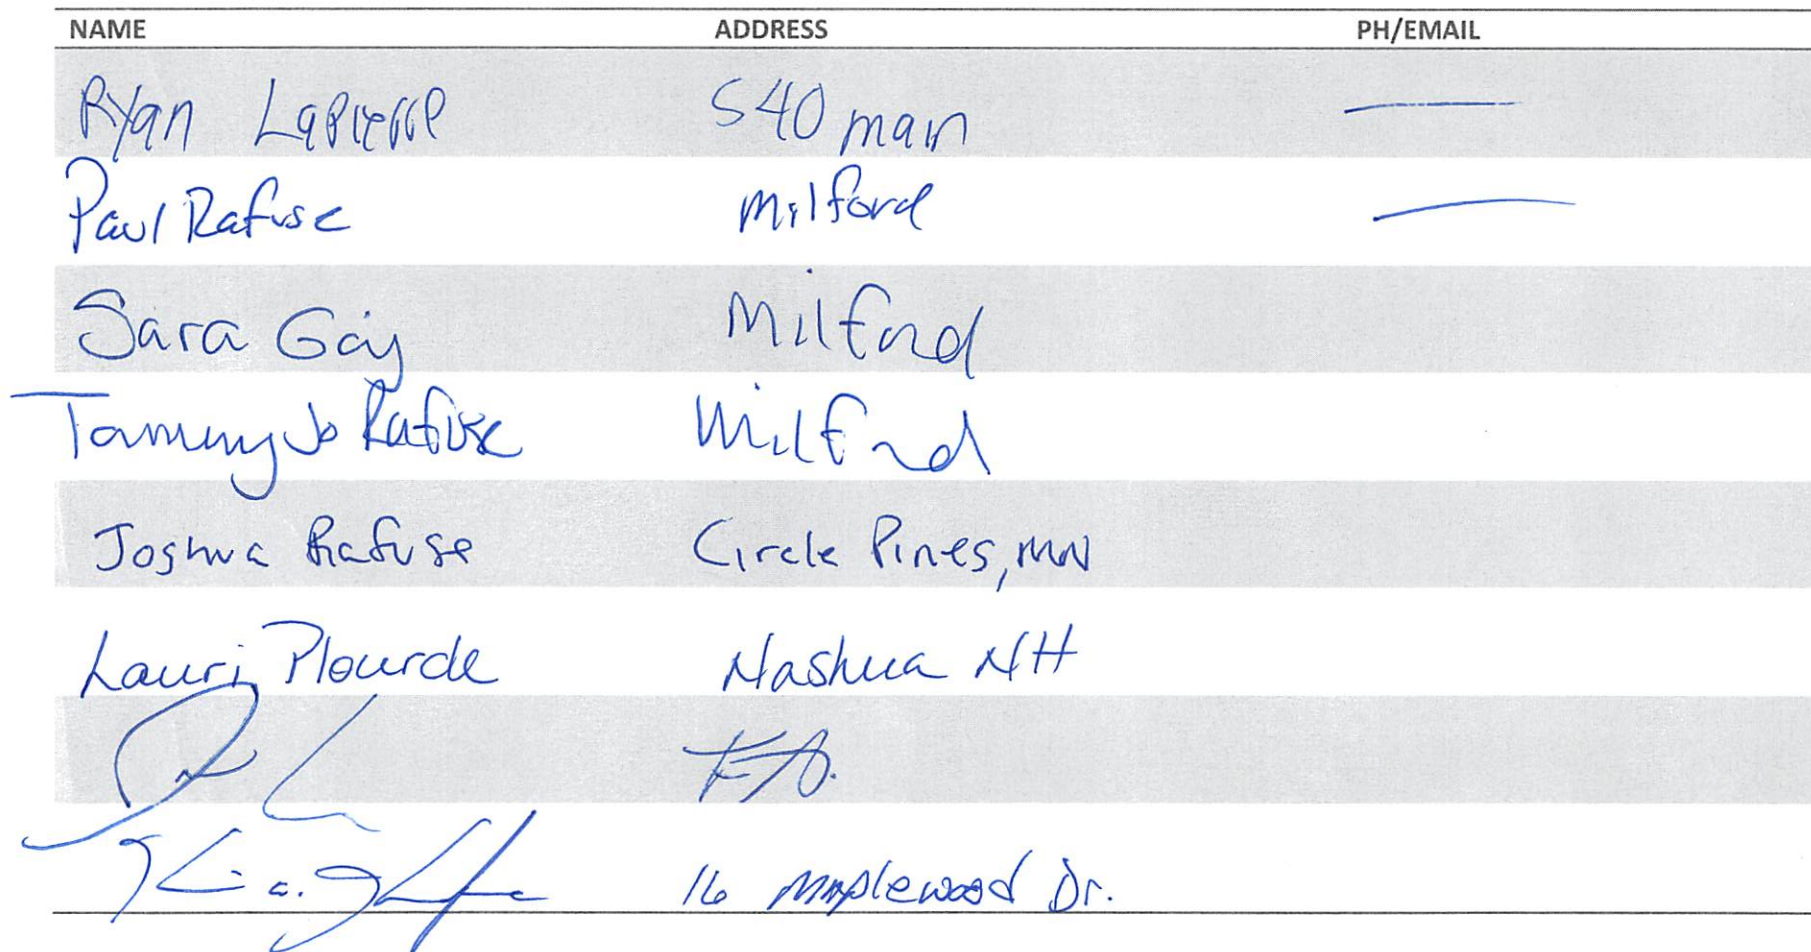 NAME ADDRESS PH/EMAIL
Ryan Lapierre 540 main —
Paul Rafuse Milford —
Sara Gay Milford
Tammy Jo Rafuse Milford
Joshua Rafuse Circle Pines, MN
Lauri Plourde Nashua NH
16 Maplewood Dr.